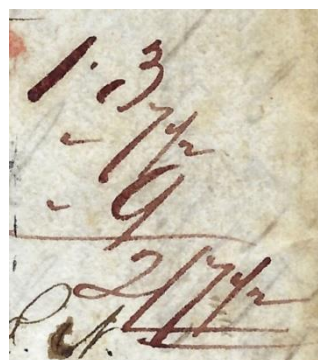 1 . 3
- 7 1/2
- 9
2/7 1/2